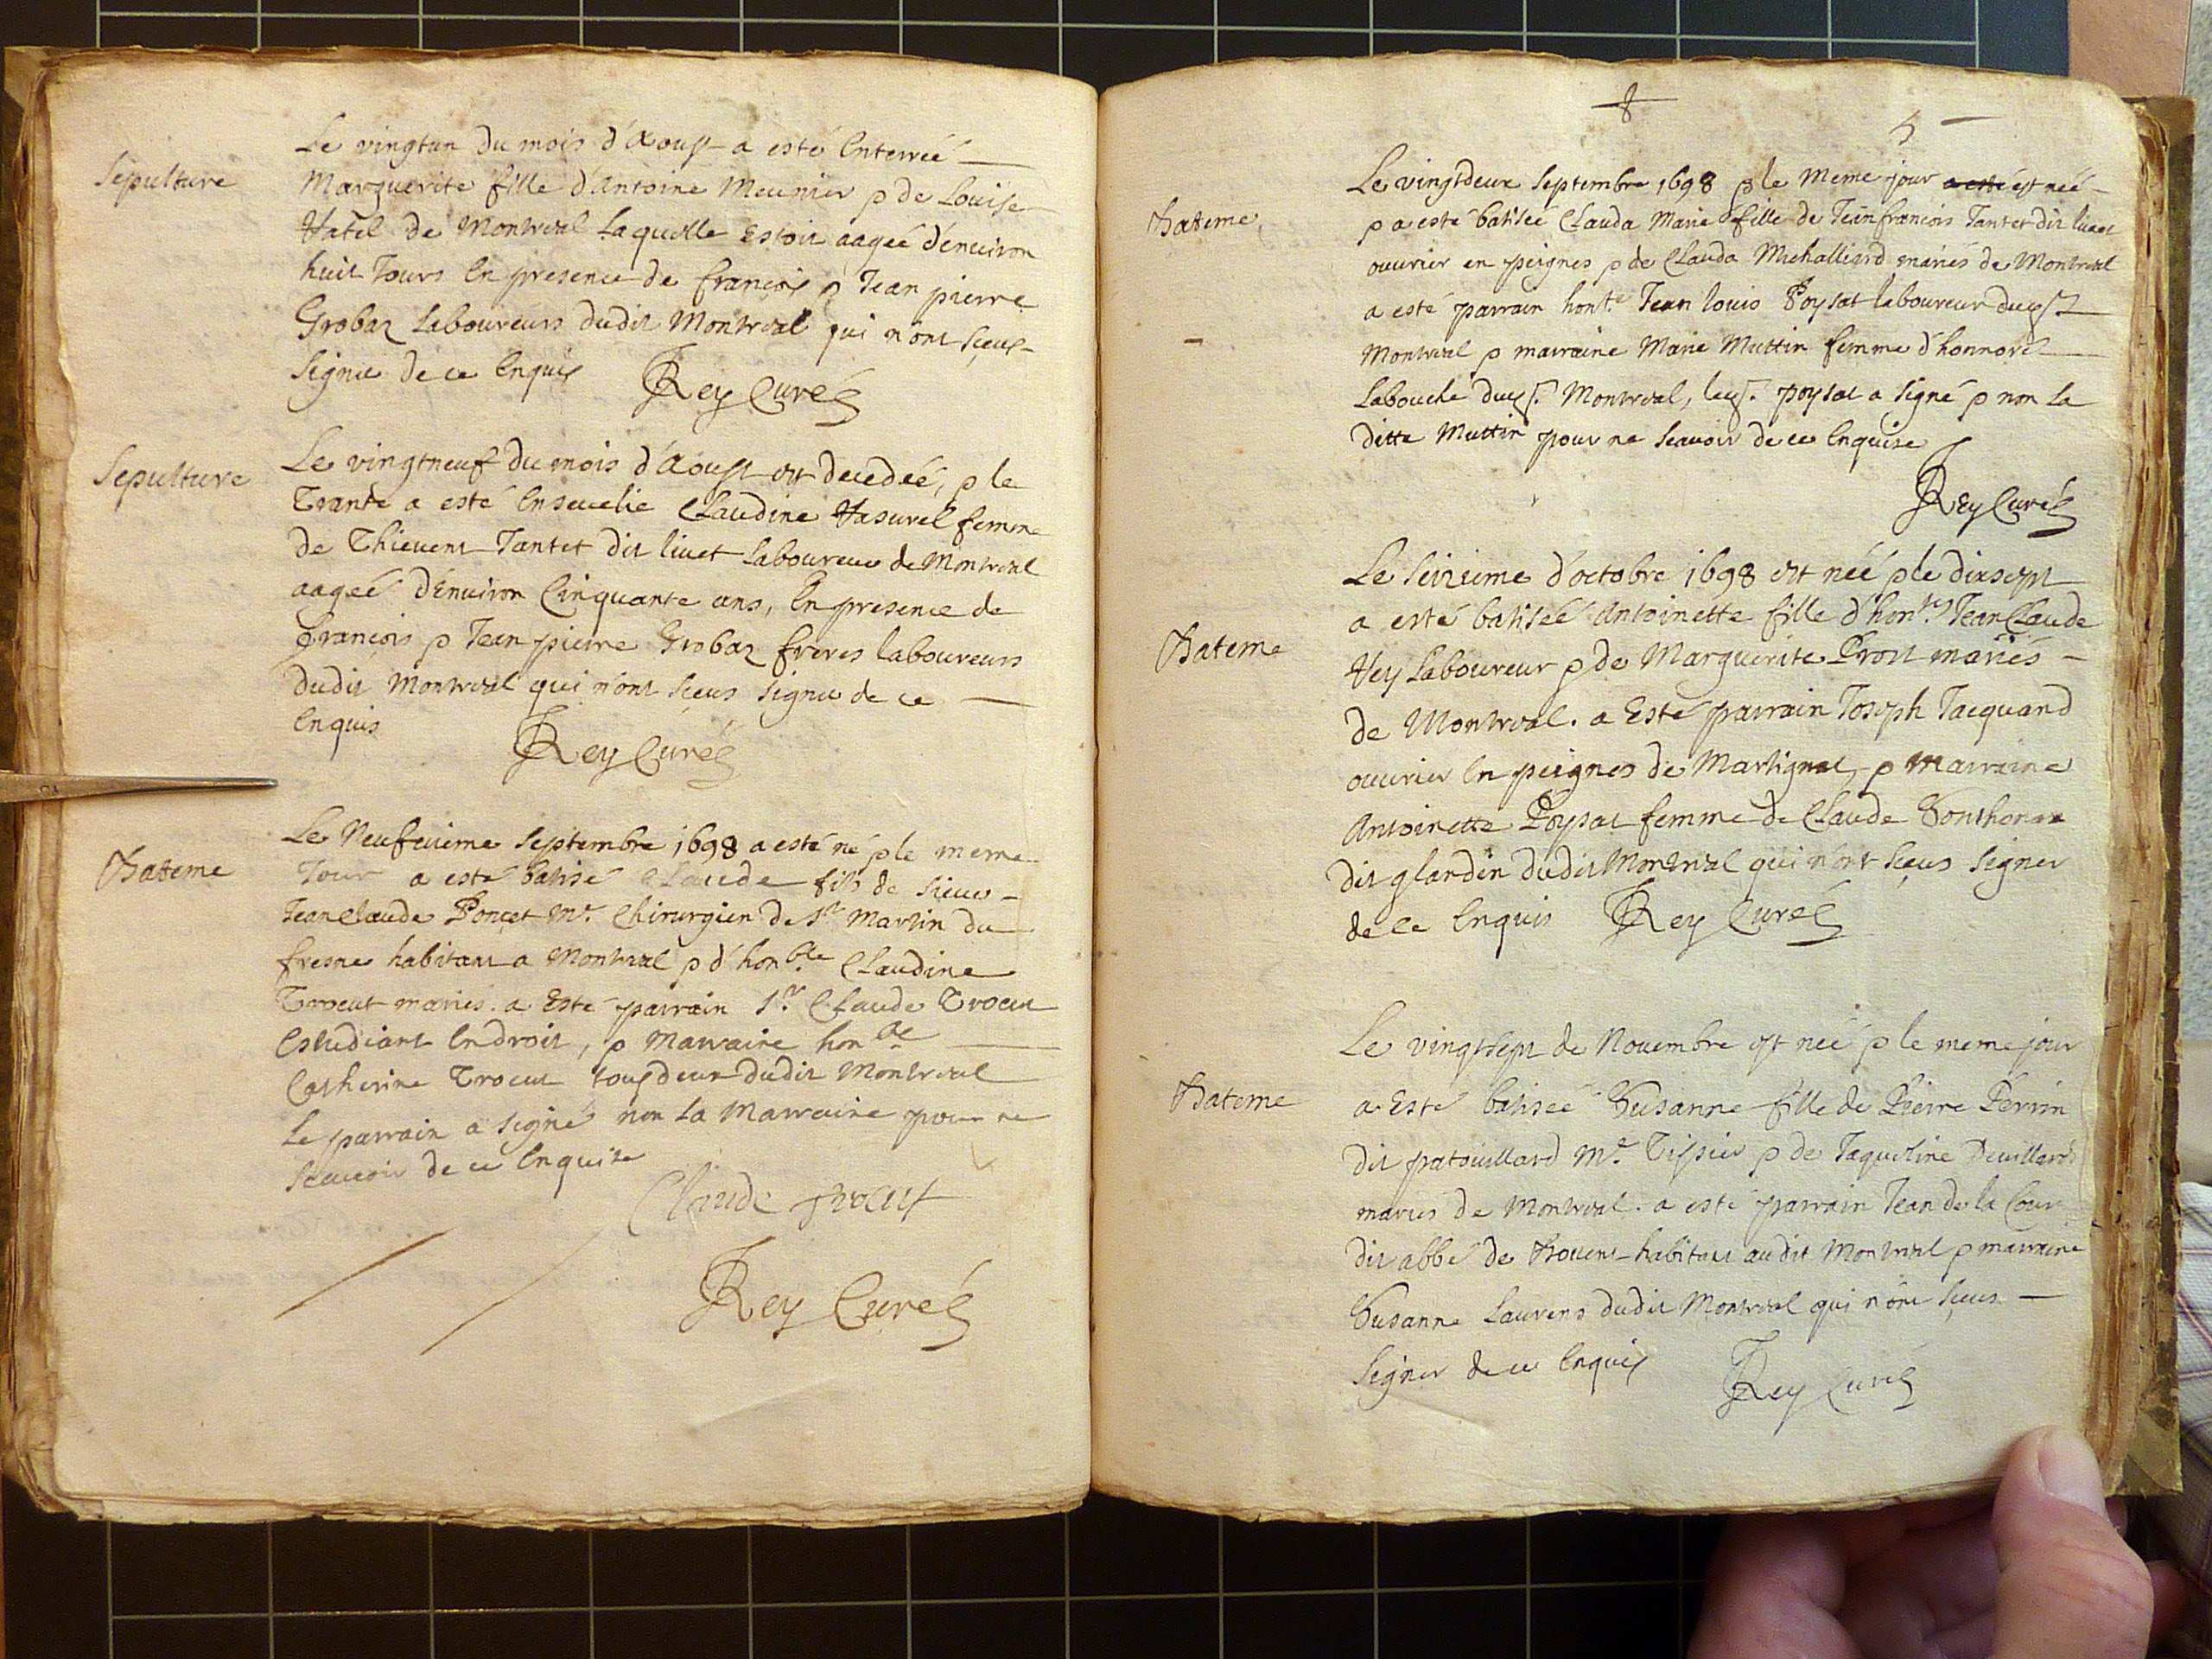 Sepulture
Le vingtun du mois d'Aoust a esté Enterreé
Marguerite fille d'Antoine Meunier & de Louise
Vatel de Montreal Laquelle Estoit aageé d'environ
huit Jours En presence de françois & Jean pierre
Grobaz Laboureurs dudit Montreal qui n'ont sçeus
Signer de ce Enquis
Rey Curé
Sepulture
Le vingtneuf du mois d'Aoust est decedeé, & le
Trante a esté Ensevelie Claudine Vasurel femme
de Thievent Tantet dit livet Laboureur de Montreal
aageé d'Environ Cinquante ans, En presence de
françois & Jean pierre Grobaz freres laboureurs
dudit Montreal qui n'ont sceus signer de ce
Enquis
Rey Curé
Bateme
Le Neufvieme Septembre 1698 a esté né & le meme
Jour a esté batisé Claude fils de Sieur
Jean claude Ponçet Mr. Chirurgien de St. Martin du
fresne habitant a Montreal & d'honble Claudine
Trocut mariés. a Esté parrain Sr. Claude Trocut
Estudiant En droit, & Marraine honble
Catherine Trocut tous deux dudit Montreal
Le parrain a signé non La Marraine pour ne
Scavoir de ce Enquise
Claude Trocut
Rey Curé
8
5
Bateme
Le vingtdeux Septembre 1698 & le Meme jour a esté est neé
& a esté batiseé Clauda Marie fille de Jean francois Tantet dit livet
ouvrier en peignes & de Clauda Michalliard mariés de Montreal
a esté parrain honte Jean louis Poysat laboureur dudt
Montreal & marraine Marie Muttin femme d'honnoré
Labouche dudt. Montreal, ledt. poysat a signé & non La
ditte Muttin pour ne Scavoir de ce Enquise
Rey Curé
Bateme
Le Seizieme d'octobre 1698 est neé & le dixsept
a esté batiseé Antoinette fille d'hontes Jean Claude
Vey Laboureur & de Marguerite Prost mariés
de Montreal. a Esté parrain Joseph Jacquand
ouvrier En peignes de Martignat, & Marraine
Antoinette Poysat femme de Claude Bonthonax
dit glandin dudit Montreal qui n'ont sçeus Signer
de ce Enquis
Rey Curé
Bateme
Le vingtsept de Novembre est neé & le meme jour
a Esté batiseé Susanne fille de Pierre Perrin
dit patouillard Me. Tissier & de Jaqueline Devillard
mariés de Montreal. a esté parrain Jean de la Cour
dit abbé de Bouent habitant audit Montreal & marraine
Susanne Laurens dudit Montreal qui n'ont sçeus
Signer de ce Enquis
Rey Curé